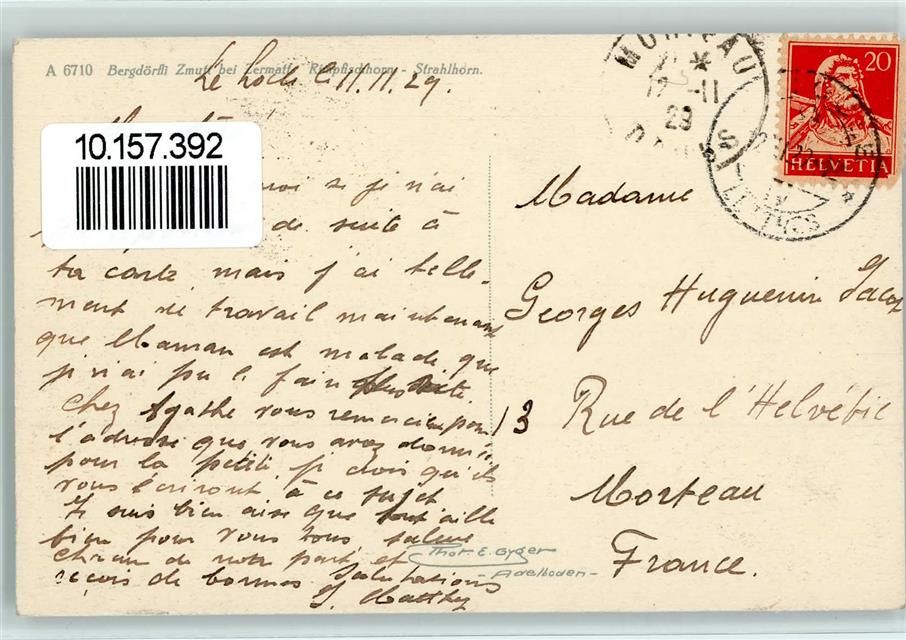 A 6710 Bergdörfli Zmutt bei Zermatt. Rimpfischhorn - Strahlhorn.
Le Locle le 11.11.29.
10.157.392
si je n'ai
de suite à
ta carte mais j'ai telle-
ment de travail maintenant
que Maman est malade que
je n'ai pu le faire plus vite
Chez Agathe vous remercie pour
l'adresse que vous avez donnée
pour la petite je crois qu'ils
vous écriront à ce sujet
Je suis bien aise que tout aille
bien pour vous tous salue
chacun de notre part et
reçois de bonnes Salutations
J. Matthey
Phot E. Gyger
- Adelboden -
MORTEAU
12 -11
29
DOUBS
20
HELVETIA
LETTRES
Madame
Georges Huguenin Jacot
13 Rue de l'Helvétie
Morteau
France.